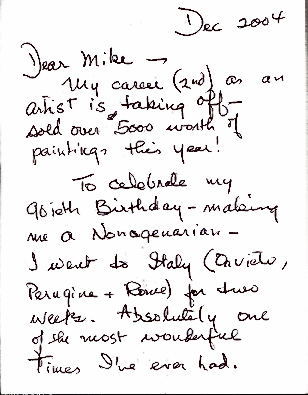 Dec 2004
Dear Mike —
My career (2nd) as an
artist is taking off—
sold over $5000 worth of
paintings this year!
To celebrate my
90ieth Birthday — making
me a Nonagenarian —
I went to Italy (Orvieto,
Perugine + Rome) for two
weeks. Absolutely one
of the most wonderful
times I've ever had.